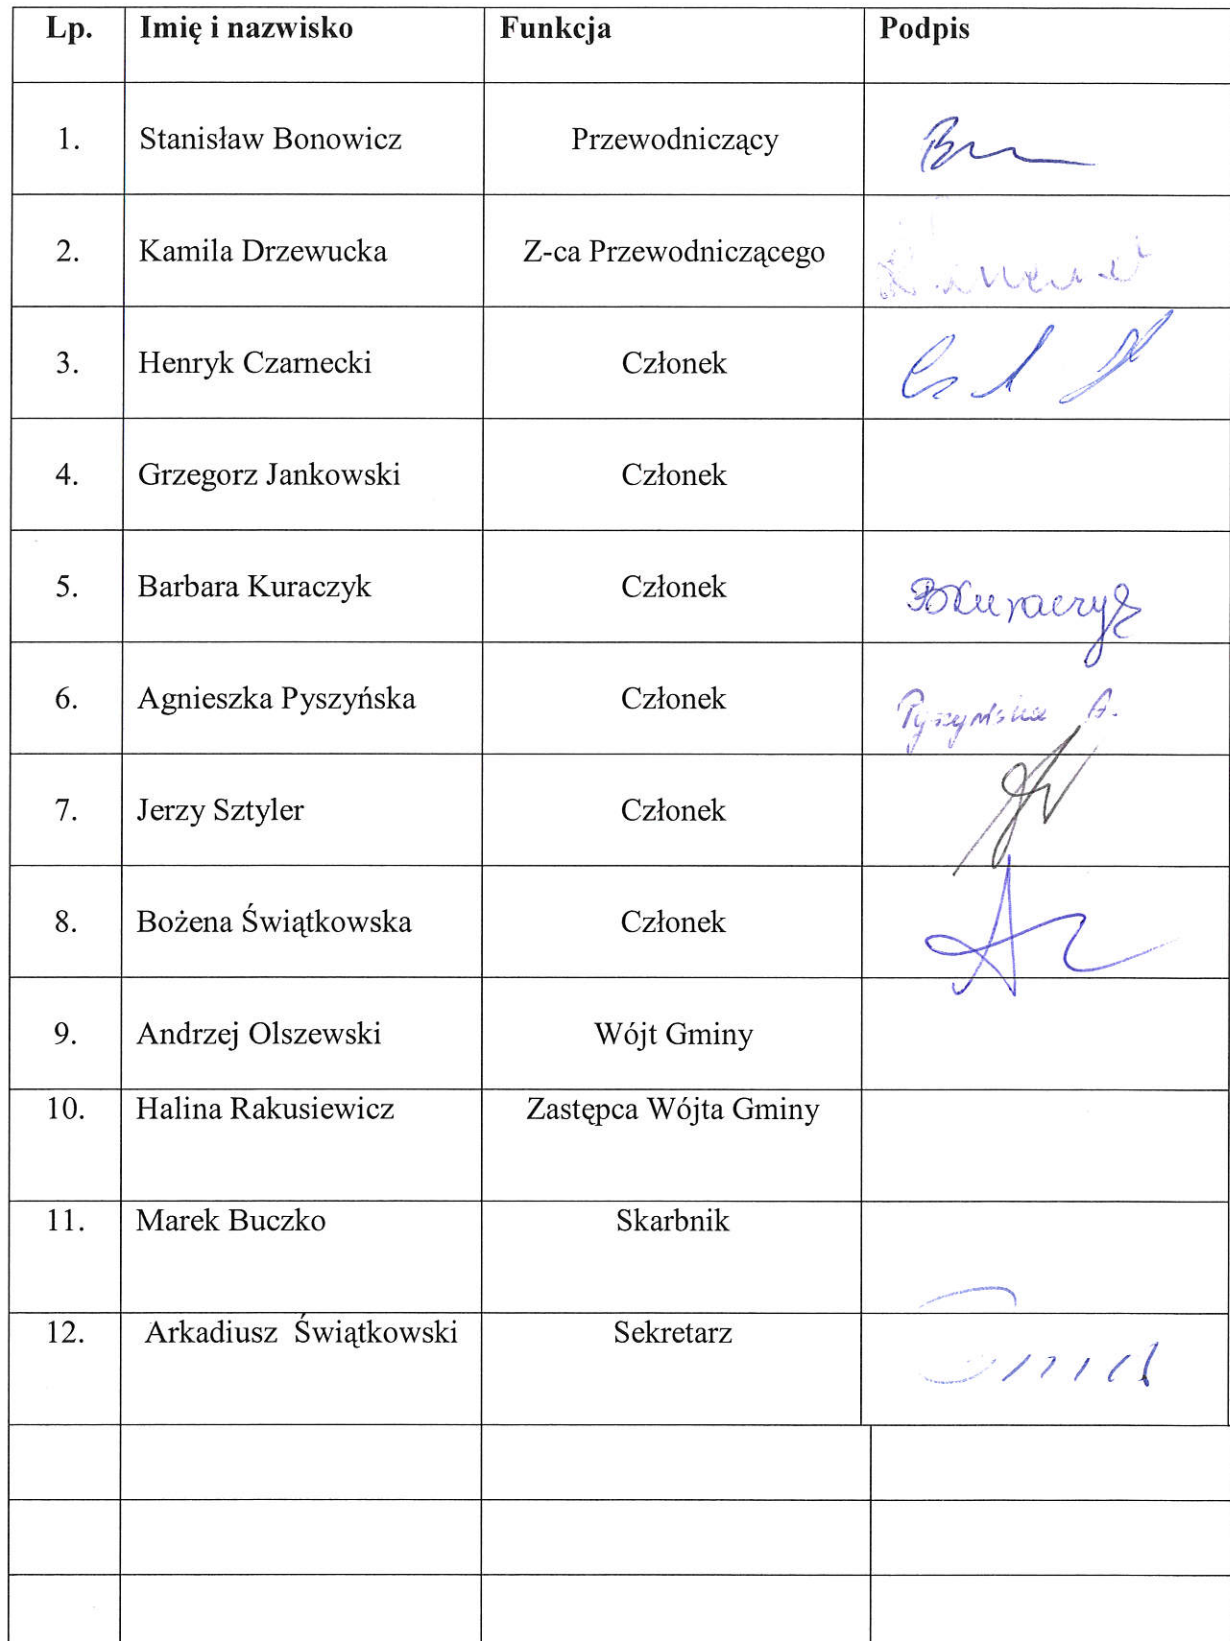 Lp. Imię i nazwisko Funkcja Podpis
1. Stanisław Bonowicz Przewodniczący
2. Kamila Drzewucka Z-ca Przewodniczącego
3. Henryk Czarnecki Członek
4. Grzegorz Jankowski Członek
5. Barbara Kuraczyk Członek BKuraczyk
6. Agnieszka Pyszyńska Członek Pyszyńska A.
7. Jerzy Sztyler Członek
8. Bożena Świątkowska Członek
9. Andrzej Olszewski Wójt Gminy
10. Halina Rakusiewicz Zastępca Wójta Gminy
11. Marek Buczko Skarbnik
12. Arkadiusz Świątkowski Sekretarz